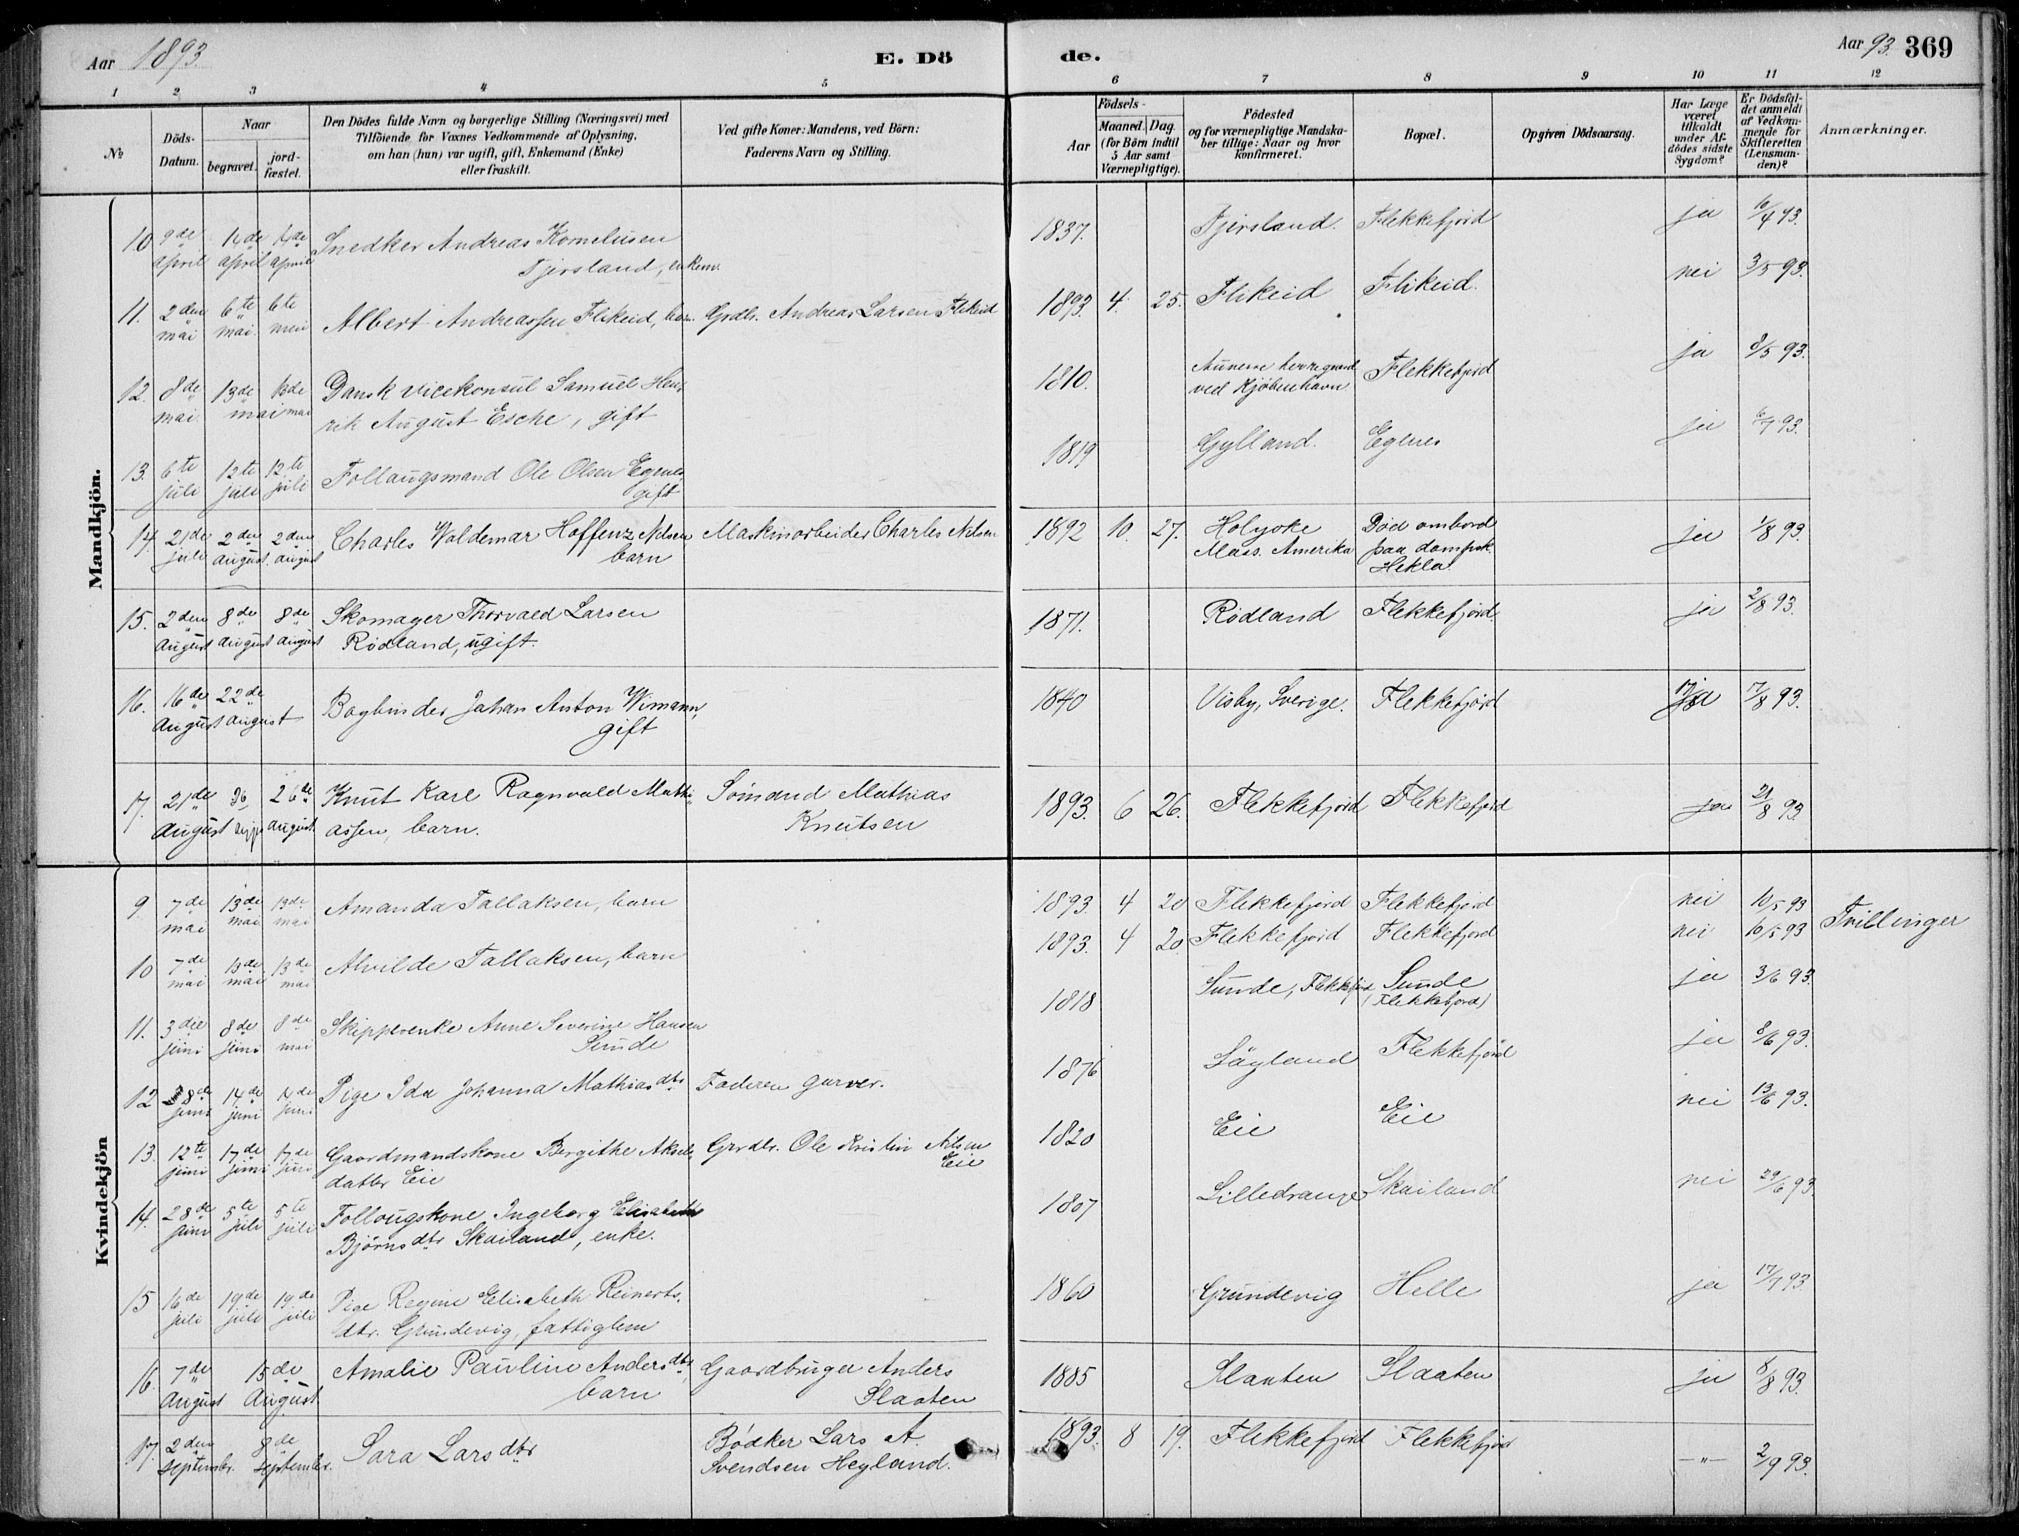 Aar 1893. E. Dö de. Aar 93. 369
1 2 3 4 5 6 7 8 9 10 11 12
No
Döds-Datum.
Naar begravet. jordfæstet.
Den Dödes fulde Navn og borgerlige Stilling (Næringsvei) med
Tilföiende for Voxnes Vedkommende af Oplysning,
om han (hun) var ugift, gift, Enkemand (Enke)
eller fraskilt.
Ved gifte Koner: Mandens, ved Börn:
Faderens Navn og Stilling.
Födsels-
Aar Maaned. Dag.
(for Børn indtil
5 Aar samt
Værnepligtige).
Födested
og for værnepligtige Mandskaber tillige: Naar og hvor
konfirmeret.
Bopæl.
Opgiven Dödsaarsag.
Har Læge
været
tilkaldt
under Afdödes sidste
Sygdom?
Er Dödsfaldet anmeldt
af Vedkommende for
Skifteretten
(Lensmanden)?
Anmærkninger.
Mandkjön.
10 9de april 14de april 14de april Snedker Andreas Kornelius­en 1837. Fjersland. Flekkefjord ja 10/4 93.
Tjersland, enkem.
11. 2den mai 6te mai. 6te mai Albert Andreassen Flikeid, barn. Grdbr. Andreas Larsen Flikeid 1893. 4. 25. Flikeid Flikeid. nei 3/5 93.
12. 8de mai. 13de mai 13de mai Dansk vicekonsul Samuel Hen- 1810. herregaard Flekkefjord ja 8/5 93.
rik August Esche, gift ved Kjöbenhavn
13. 6te juli 12te juli 12te juli Follaugsmand Ole Olsen Egenes, 1819 Gylland. Egenes ja 6/7 93.
gift
14 21de juli 2den august. 2den august Charles Waldemar Hoffenz Nilsen Maskinarbeider Charles Nilsen 1892 10. 27. Holyoke Död ombord ja 1/8 93.
barn Mass. Amerika paa dampsk.
Hekla
15. 2den August 8de August 8de August Skomager Thorvald Larsen 1871. Rödland Flekkefjord ja 2/8 93.
Rödland, ugift.
16. 16de August 22de august Bogbinder Johan Anton Wimann, 1840 Visby, Sverige. Flekkefjord ja 17/8 93.
gift
17. 21de August 26 26de august. Knut Karl Ragnvald Mathi- Sömand Mathias 1893. 6 26. Flekkefjord Flekkefjord ja 21/8 93
assen, barn. Knutsen
Kvindekjön
9. 7de mai 13de mai 13de mai Amanda Tallaksen, barn 1893. 4 20 Flekkefjord Flekkefjord nei 10/5 93 Tvillinger
10 7de mai 13de mai 13de mai Alvilde Tallaksen, barn 1893. 4 20. Flekkefjord Flekkefjord nei 10/5 93
11. 3die juni 8de juni 8de mai Skipperenke Anne Severine Hansen 1818 Sunde, Flekkefjord Sunde ja 3/6 93.
Sunde (Flekkefjord)
12 8de juni 14de juni 14de juni Pige Ida Johanna Mathiasdtr Faderen garver. 1876 Löyland Flekkefjord ja 8/6 93.
13. 12te juni 17de juni 17de juni Gaardmandskone Bergithe Aksels- Grdbr. Ole Kristin Nilsen 1820 Eie Eie nei 13/6 93.
datter Eie Eie
14. 28de juni 5te juli 5te juli Follougskone Ingeborg Elisabeth 1807 Lilledrange Skailand nei 29/6 93.
Björnsdtr Skailand, enke.
15 16de juli 19de juli 19de juli Pige Regine Elisabeth Reinerts- 1860 Grundevig Helle ja 17/7 93.
dtr. Grundevig, fattiglem
16. 7de August 15de August Amalie Pauline Andersdtr, Gaardbruger Anders 1885 Slaaten Slaaten ja 8/8 93.
barn Slaaten
17. 2den septembr. 8de september. Sara Larsdtr Bödker Lars A. 1893. 8 19. Flekkefjord Flekkefjord —"— 2/9 93.
Svendsen Heyland.